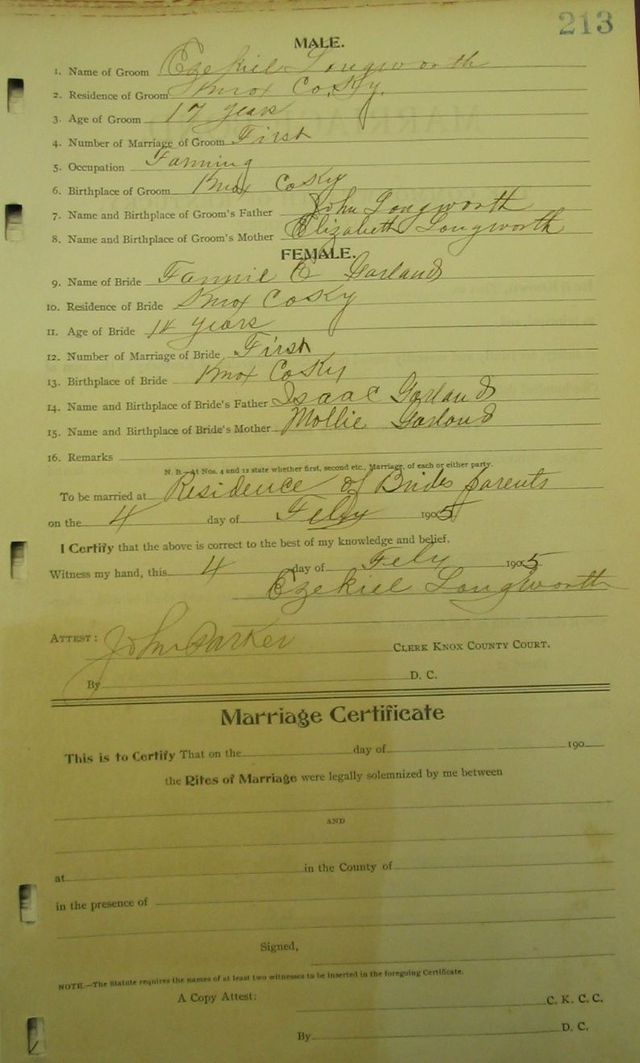 213
MALE.
1. Name of Groom Ezekiel Longworth
2. Residence of Groom Knox Co. Ky.
3. Age of Groom 17 years
4. Number of Marriage of Groom First
5. Occupation Farming
6. Birthplace of Groom Knox Co Ky
7. Name and Birthplace of Groom's Father John Longworth
8. Name and Birthplace of Groom's Mother Elizabeth Longworth
FEMALE.
9. Name of Bride Fannie E Garland
10. Residence of Bride Knox Co Ky
11. Age of Bride 14 years
12. Number of Marriage of Bride First
13. Birthplace of Bride Knox Co Ky
14. Name and Birthplace of Bride's Father Isaac Garland
15. Name and Birthplace of Bride's Mother Mollie Garland
16. Remarks
N. B.—At Nos. 4 and 12 state whether first, second etc., Marriage, of each or either party.
To be married at Residence of Brides parents
on the 4 day of Feby 1905
I Certify that the above is correct to the best of my knowledge and belief.
Witness my hand, this 4 day of Feby 1905
Ezekiel Longworth
ATTEST: John Parker CLERK KNOX COUNTY COURT.
By D. C.
Marriage Certificate
This is to Certify That on the day of 190
the Rites of Marriage were legally solemnized by me between
AND
at in the County of
in the presence of
Signed,
NOTE.—The Statute requires the names of at least two witnesses to be inserted in the foregoing Certificate.
A Copy Attest: C. K. C. C.
By D. C.